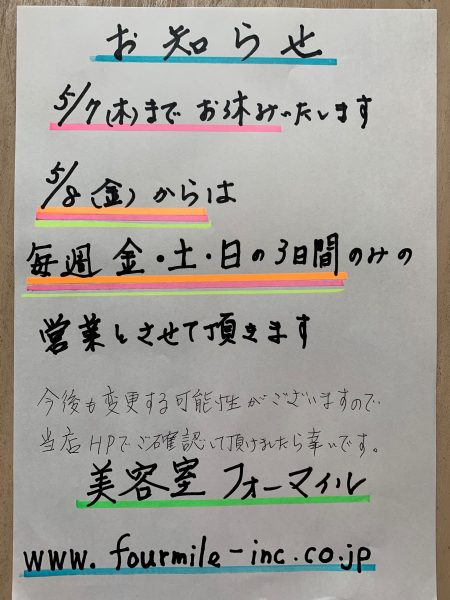 お知らせ
5/7(木)まで お休みいたします
5/8(金)からは
毎週 金・土・日の3日間のみの
営業とさせて頂きます
今後も変更する可能性がございますので
当店HPでご確認して頂けましたら幸いです。
美容室 フォーマイル
www.fourmile-inc.co.jp